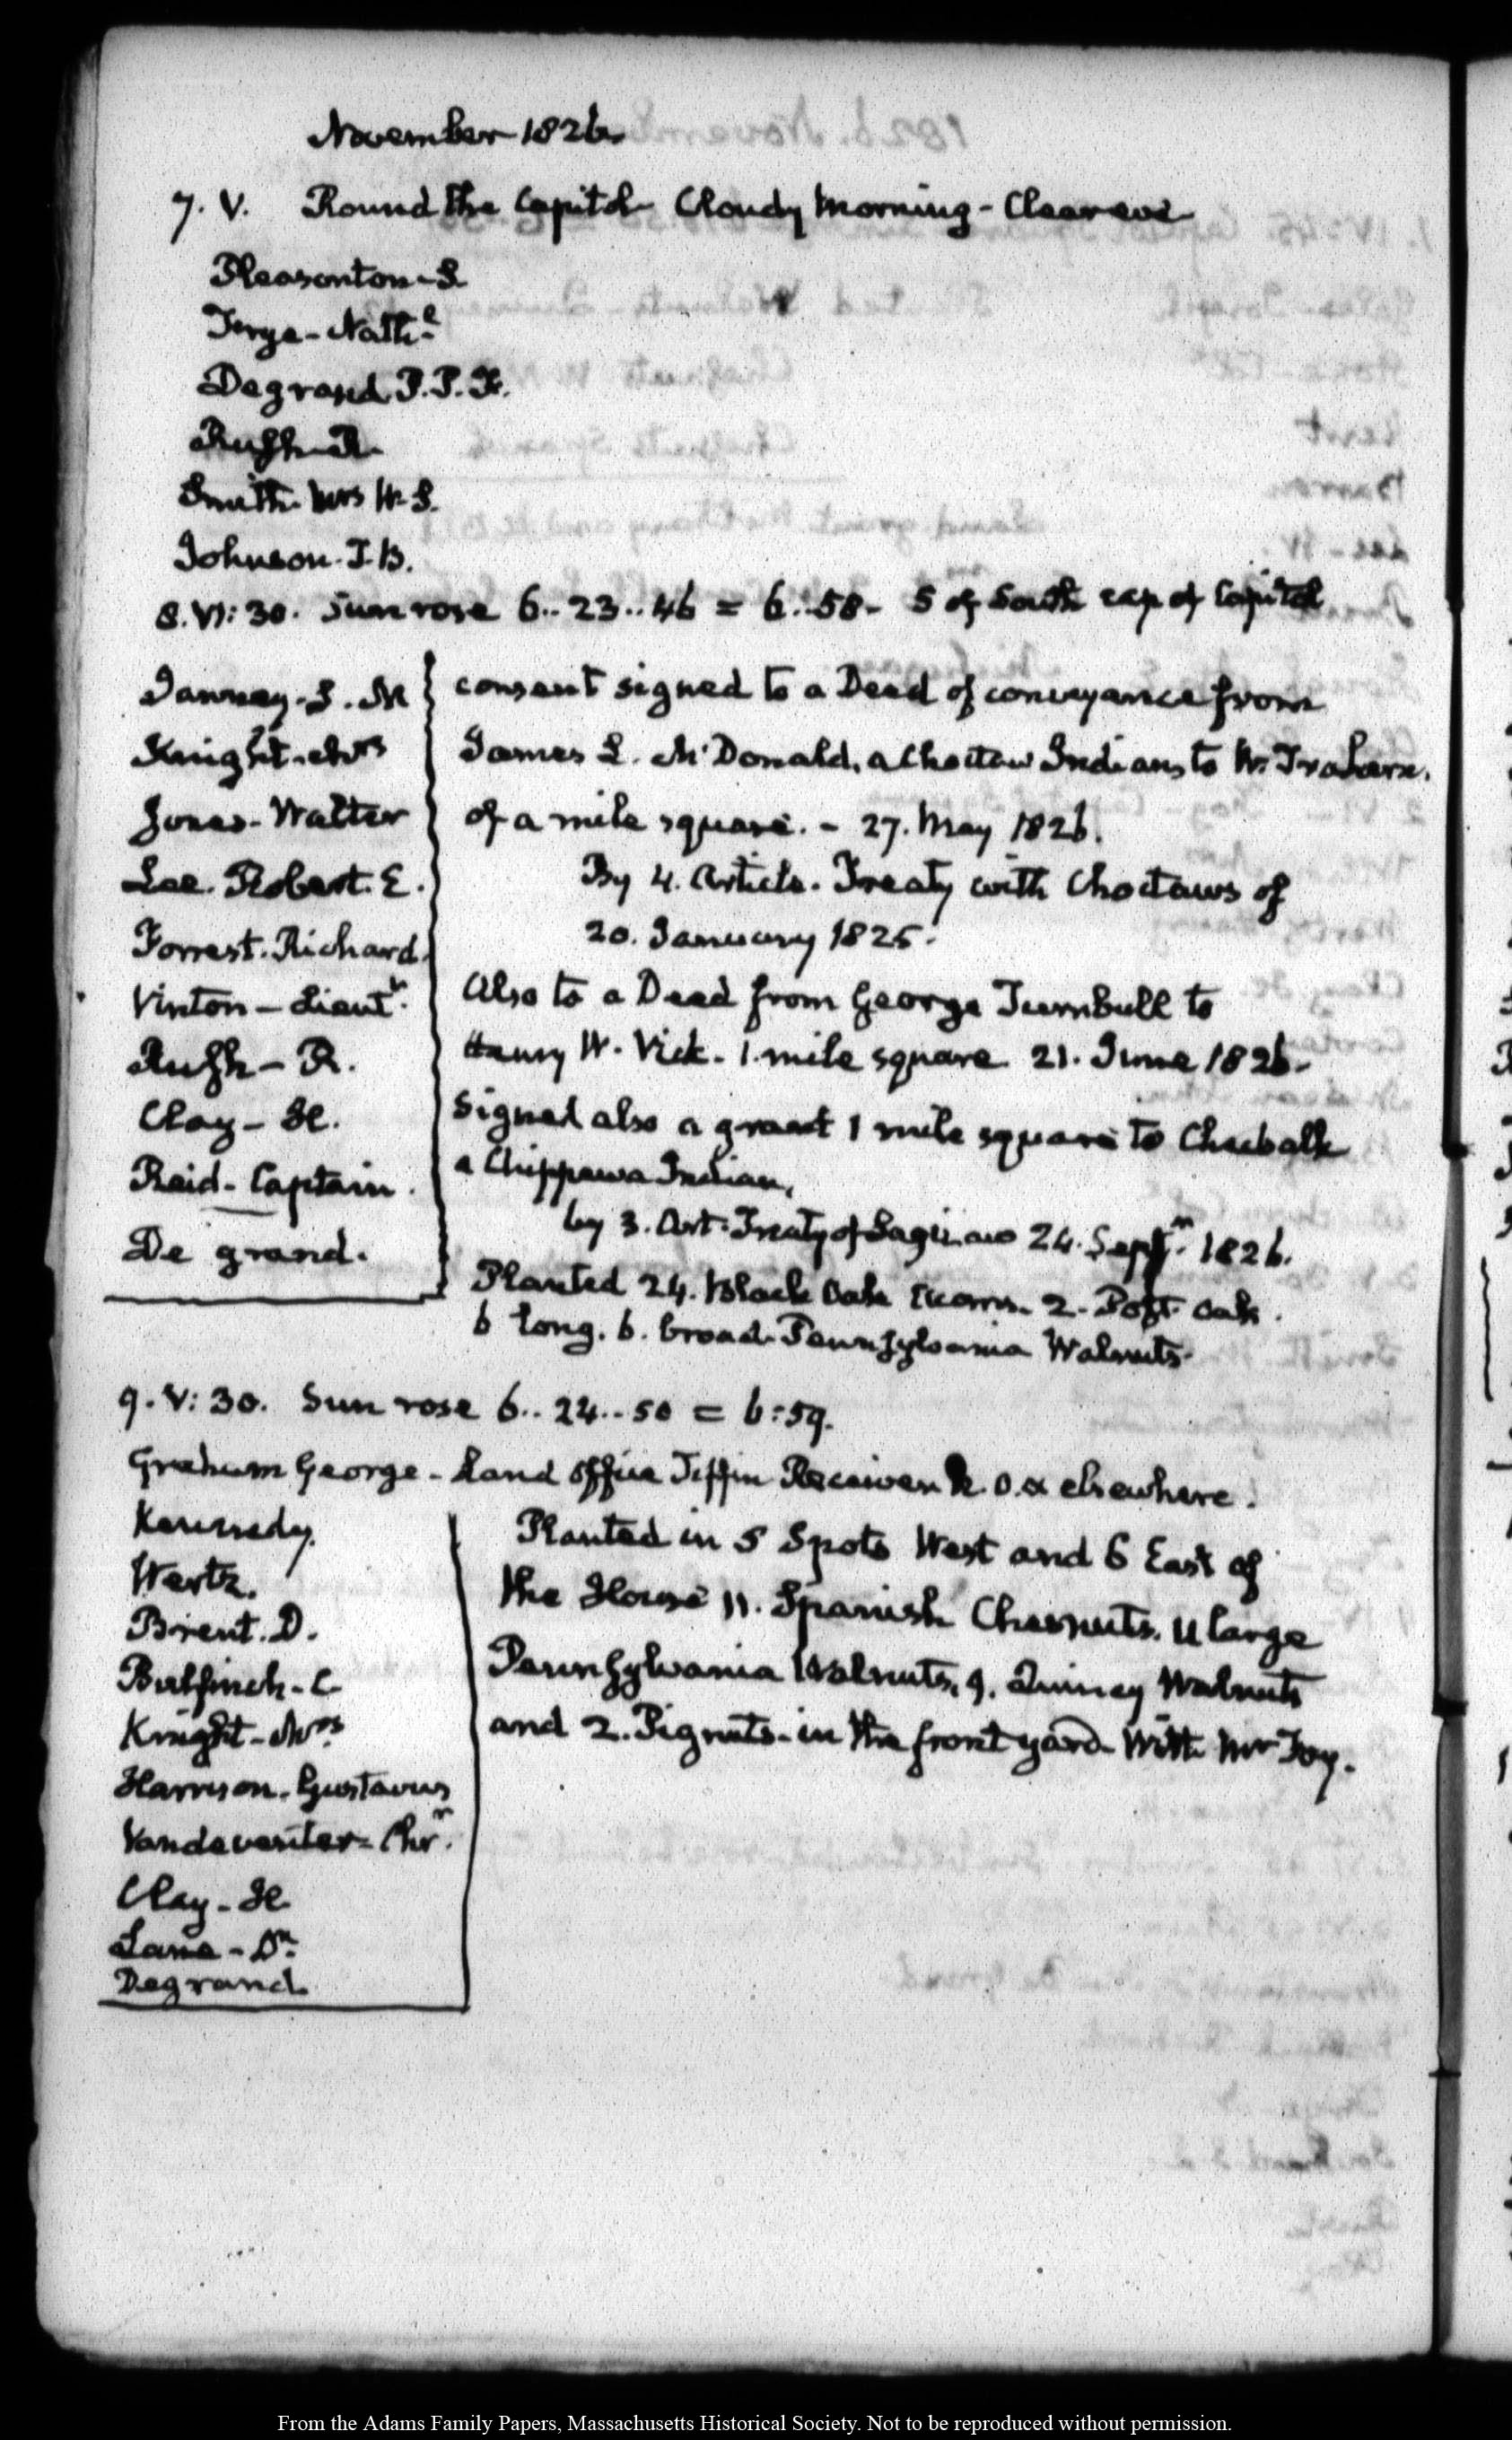 November 1826.
7. V. Round the Capitol Cloudy Morning - Clear eve
Pleasonton - S.
Frye - Nath.l
Degrand P. P. F.
Rush - R.
Smith Mrs W. S.
Johnson. J. B.
8. VI: 30. Sun rose 6..23..46 = 6..58 - S of South cap of Capitol
Janney - S. M
Knight - Mrs
Jones - Walter
Lee. Robert. E.
Forrest. Richard.
Vinton - Lieut.t
Rush - R.
Clay - H.
Reid - Captain.
De grand.
consent signed to a Deed of conveyance from
James L. McDonald, a Choctaw Indian, to W. Trahern.
of a mile square. - 27. May 1826.
By 4. Article. Treaty with Choctaws of
20. January 1825.
Also to a Deed from George Turnbull to
Henry W. Vick - 1. mile square 21. June 1826.
Signed also a grant 1 mile square to
a Chippewa Indian,
by 3. Art: Treaty of Saginaw 24. Sept.r 1826.
Planted 24. Black Oak Acorns. 2. Post Oak.
6 long. 6. broad Pennsylvania Walnuts.
9. V: 30. Sun rose 6..24..50 = 6:59.
Graham George - Land office Tiffin Receiver elsewhere.
Kennedy.
Wertz.
Brent. D.
Bulfinch - C
Knight - Mrs
Harrison. Gustavus
Vandeventer - Chr.r
Clay - H
Lane - Dr
Degrand
Planted in 5 Spots West and 6 East of
the House 11. Spanish Chesnuts. 11 large
Pennsylvania Walnuts, 9. Quincy Walnuts
and 2. Pignuts - in the front yard. With Mr Foy.
From the Adams Family Papers, Massachusetts Historical Society. Not to be reproduced without permission.